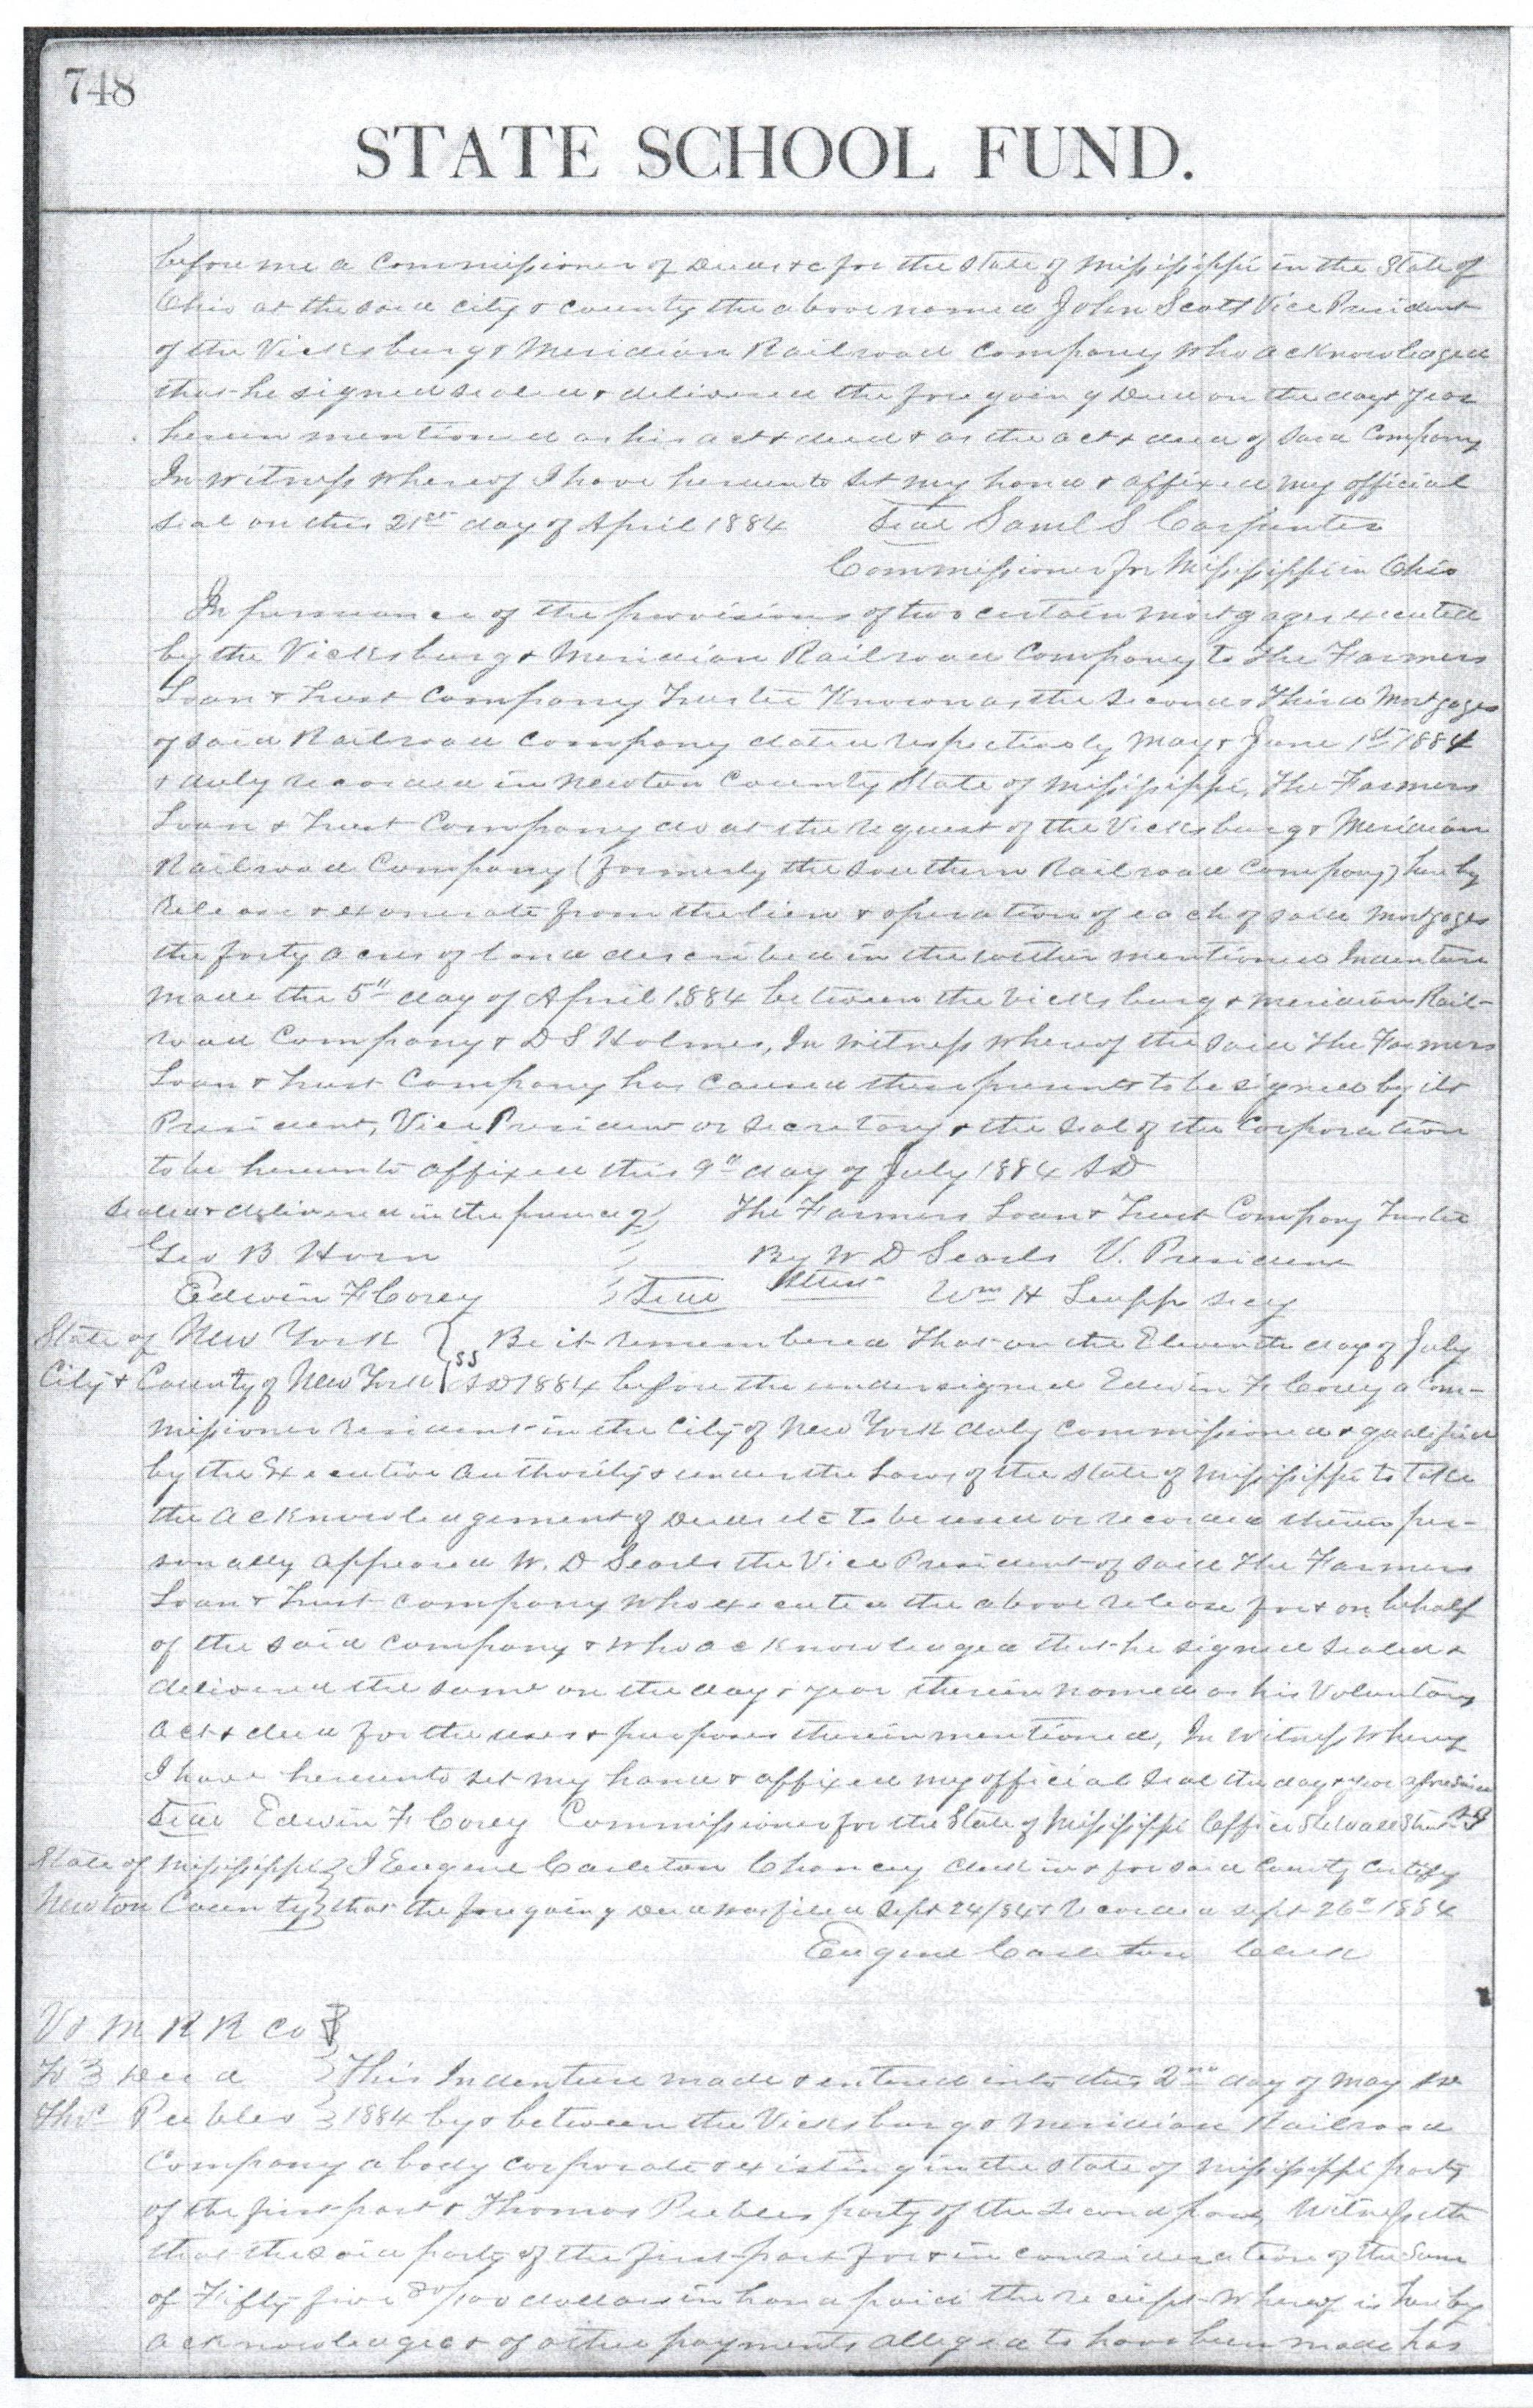 748
STATE SCHOOL FUND.
before me a Commissioner of Deeds &c for the State of Mississippi in the State of
Ohio at the said city & county the above named John Scott Vice President
of the Vicksburg & Meridian Railroad Company who acknowledged
that he signed sealed & delivered the foregoing Deed on the day & year
herein mentioned as his act & deed & as the act & deed of said Company
In witness whereof I have hereunto set my hand & affixed my official
seal on this 21st day of April 1884 Seal Saml S Carpenter
Commissioner for Mississippi in Ohio
In pursuance of the provisions of two certain mortgages executed
by the Vicksburg & Meridian Railroad Company to The Farmers
Loan & Trust Company Trustee Known as the Second & Third Mortgages
of said Railroad Company dated respectively May & June 1st 1884
& duly recorded in Newton County State of Mississippi, The Farmers
Loan & Trust Company do at the request of the Vicksburg & Meridian
Railroad Company (formerly the Southern Railroad Company) hereby
release & exonerate from the lien & operation of each of said Mortgages
the forty acres of land described in the within mentioned Indenture
made the 5" day of April 1884 between the Vicksburg & Meridian Rail-
road Company & D S Holmes, In witness whereof the said The Farmers
Loan & Trust Company has caused these presents to be signed by its
President, Vice President or Secretary & the Seal of the Corporation
to be hereunto affixed this 9" day of July 1884 AD
Sealed & delivered in the presence of The Farmers Loan & Trust Company Trustee
Geo B Horn By W D Searls V. President
Edwin F Corey Seal Attest Wm H Leupp secy
State of New York } Be it remembered That on the Eleventh day of July
City & County of New York } SS AD 1884 before the undersigned Edwin F Corey a Com-
missioner resident in the City of New York duly Commissioned & qualified
by the Executive Authority & under the Laws of the State of Mississippi to take
the acknowledgement of Deeds etc to be used or recorded therein per-
sonally appeared W. D Searls the Vice President of said The Farmers
Loan & Trust Company who executed the above release for & on behalf
of the said Company & who acknowledged that he signed sealed &
delivered the same on the day & year therein named as his Voluntary
act & deed for the uses & purposes therein mentioned, In witness whereof
I have hereunto set my hand & affixed my official seal the day & year aforesaid
Seal Edwin F Corey Commissioner for the State of Mississippi Office Wall Street
State of Mississippi } I Eugene Carleton Chancery Clerk in & for said County Certify
Newton County } that the foregoing Deed was filed Sept 24/84 & Recorded Sept 26" 1884
Eugene Carleton Clerk
V & M R R Co }
To } Deed } This Indenture made & entered into this 2nd day of May
Thos Peebles } 1884 by & between the Vicksburg & Meridian Railroad
Company a body corporate & existing in the State of Mississippi party
of the first part & Thomas Peebles party of the second part, Witnesseth
that the said party of the first part for & in consideration of the Sum
of Fifty five 80/100 dollars in hand paid the receipt whereof is hereby
acknowledged & of other payments alleged to have been made has